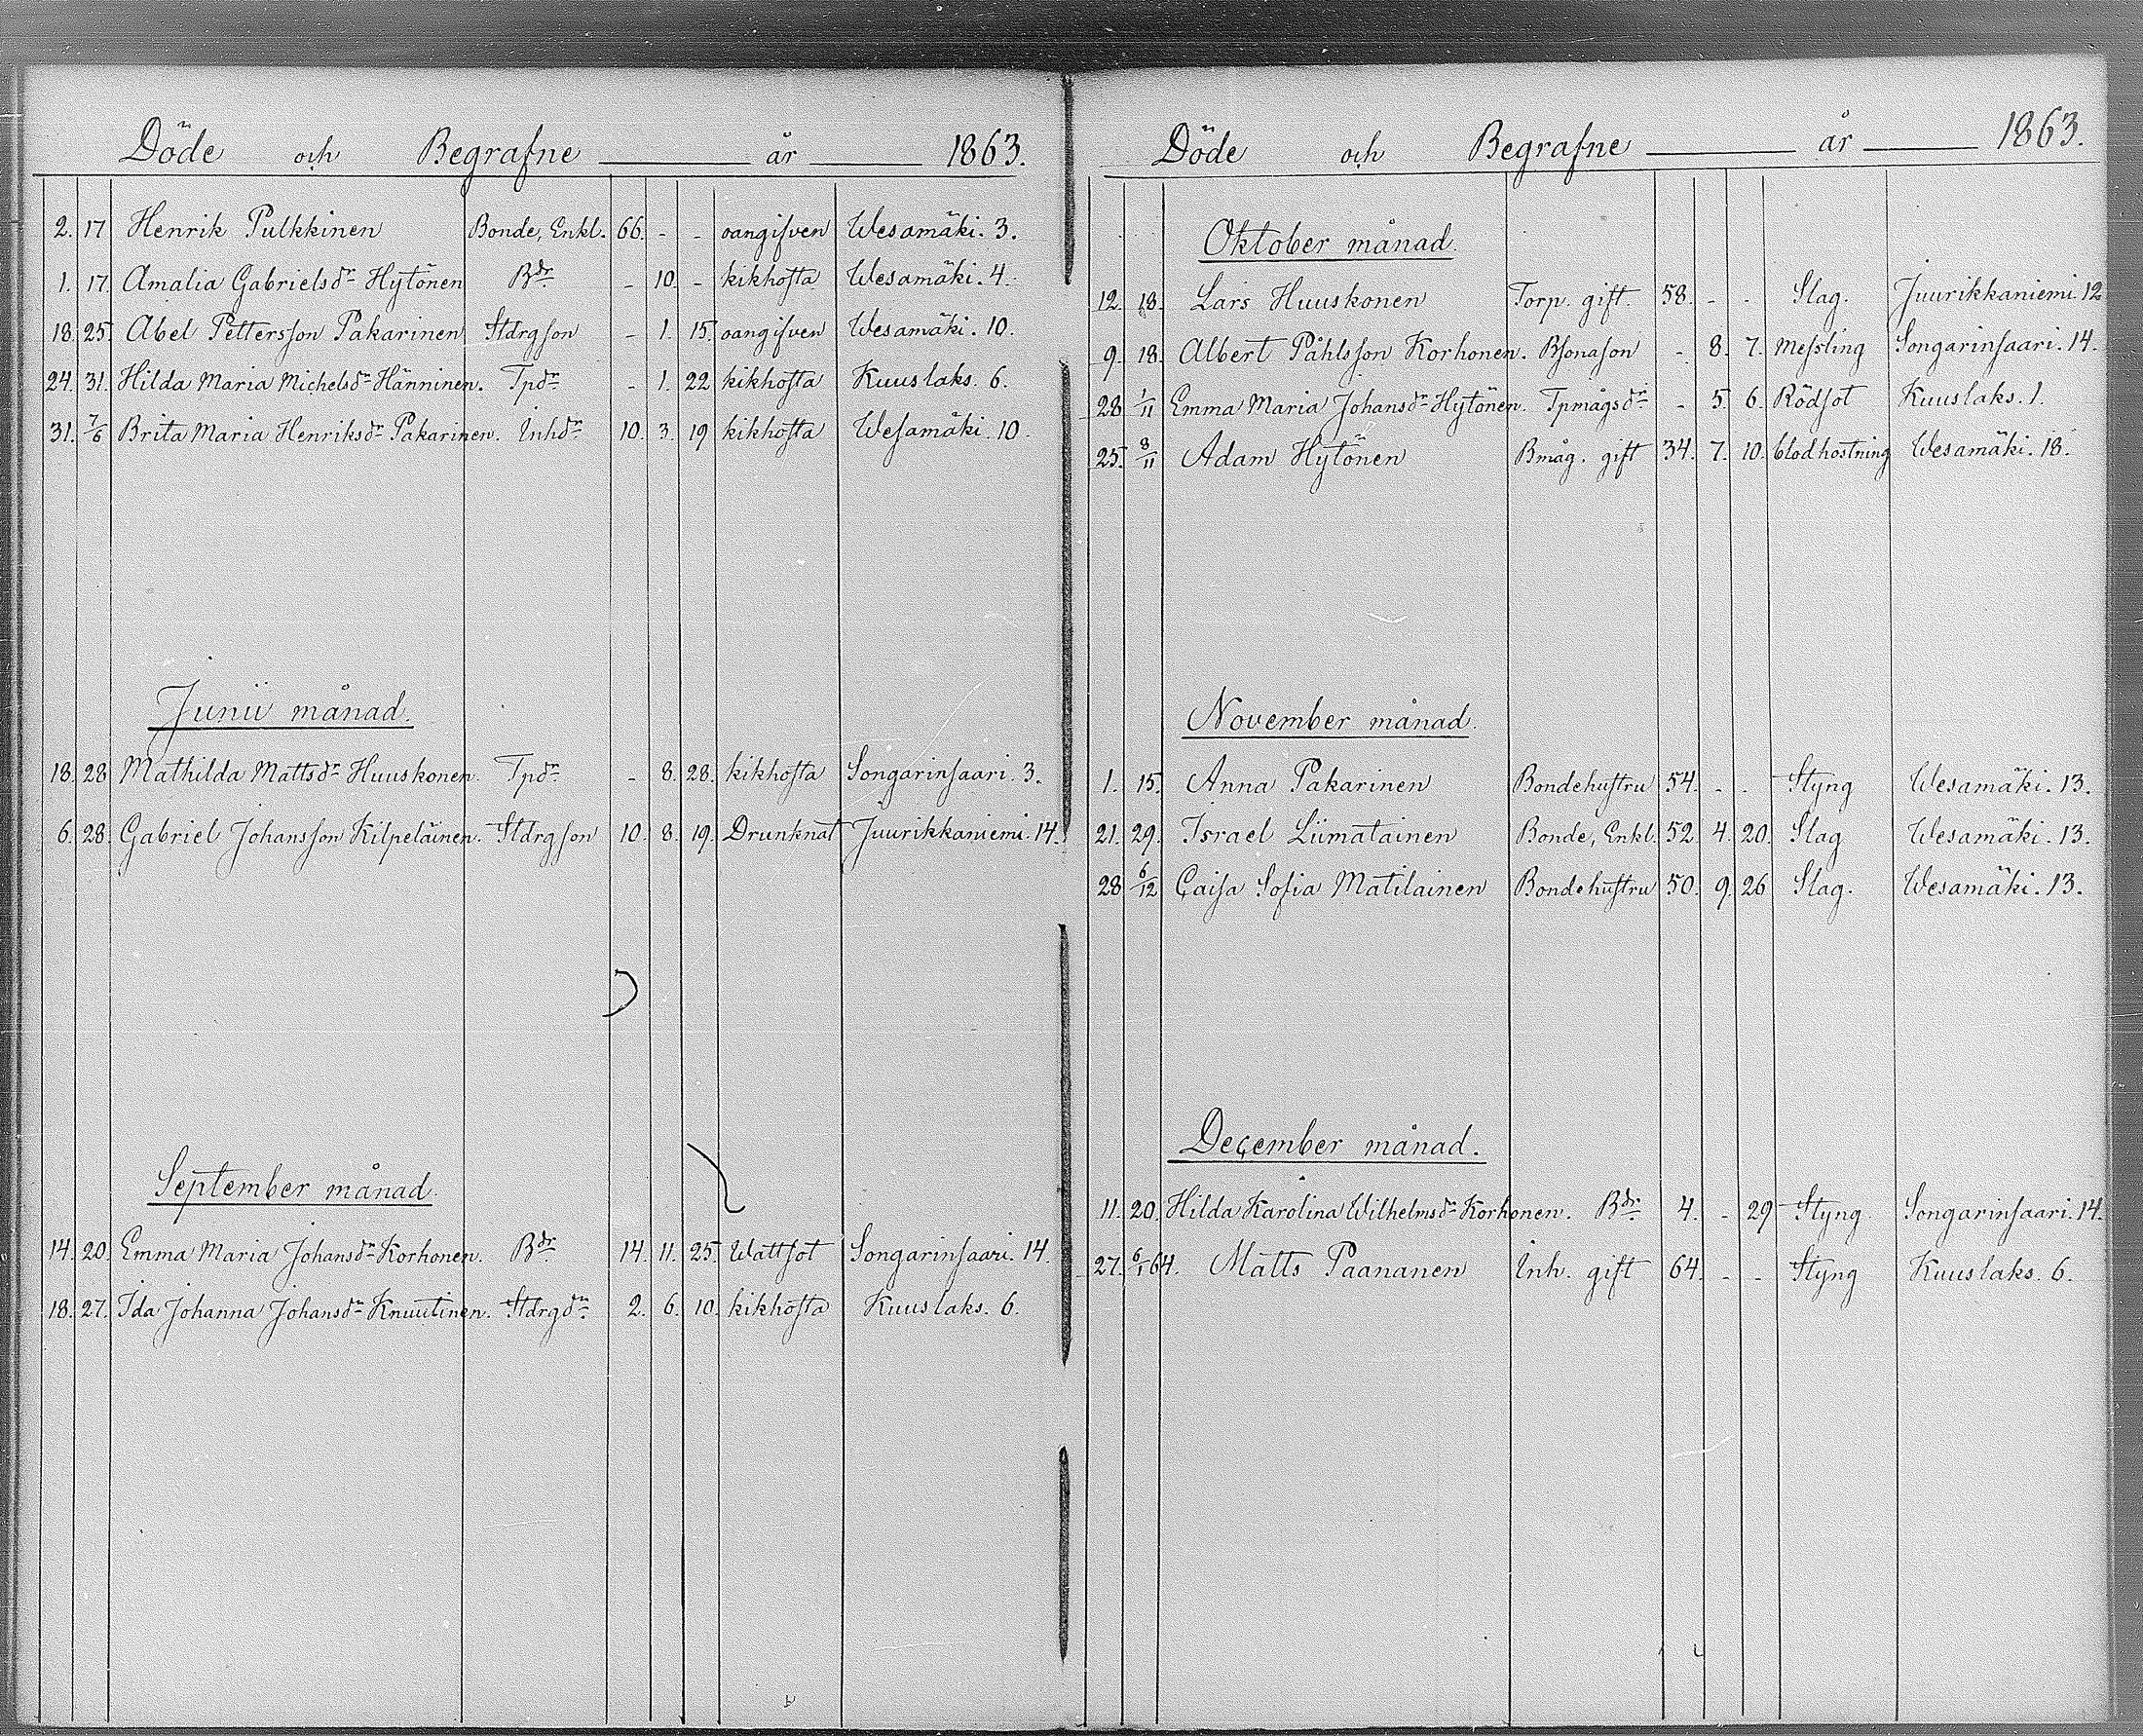 Döde och Begrafne år 1863.
2. 17 Henrik Pulkkinen Bonde, Enkl. 66. - - oangifven Wesamäki. 3.
1. 17. Amalia Gabrielsdr Hytönen Bdr - 10. - kikhosta Wesamäki. 4.
18. 25. Abel Pettersson Pakarinen Stdrgson - 1. 15. oangifven Wesamäki. 10.
24. 31. Hilda Maria Michelsdr Hänninen. Tpdr - 1. 22 kikhosta Kuuslaks. 6.
31. 7/6 Brita Maria Henriksdr Pakarinen. Inhdr 10. 3. 19 kikhosta Wesamäki. 10.
Junii månad.
18. 28 Mathilda Mattsdr Huuskonen. Tpdr - 8. 28. kikhosta Songarinsaari. 3.
6. 28. Gabriel Johansson Kilpeläinen. Stdrgson 10. 8. 19. Drunknat Juurikkaniemi. 14.
September månad.
14. 20. Emma Maria Johansdr Korhonen. Bdr 14. 11. 25. Wattsot Songarinsaari. 14.
18. 27. Ida Johanna Johansdr Knuutinen. Stdrgdr 2. 6. 10. kikhosta Kuuslaks. 6.
Döde och Begrafne år 1863.
Oktober månad.
12. 18. Lars Huuskonen Torp. gift. 58. - - Slag. Juurikkaniemi. 12
9. 18. Albert Påhlsson Korhonen. Bsonason - 8. 7. Messling Songarinsaari. 14.
28 1/11 Emma Maria Johansdr Hytönen. Tpmågsdr - 5. 6. Rödsot Kuuslaks. 1.
25. 8/11 Adam Hytönen Bmåg. gift 34. 7. 10. blodhostning Wesamäki. 18.
November månad.
1. 15. Anna Pakarinen Bondehustru 54. - - Styng Wesamäki. 13.
21. 29. Israel Liimatainen Bonde, Enkl. 52. 4. 20. Slag Wesamäki. 13.
28 6/12 Caisa Sofia Matilainen Bondehustru 50. 9. 26 Slag. Wesamäki. 13.
December månad.
11. 20. Hilda Karolina Wilhelmsdr Korhonen. Bdr 4. - 29 Styng Songarinsaari. 14.
27. 6/1 64. Matts Paananen Inh. gift 64. - - Styng Kuuslaks. 6.